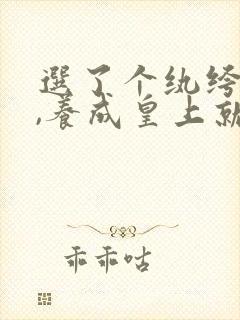 選了个纨绔
,養成皇上就
乖乖咕